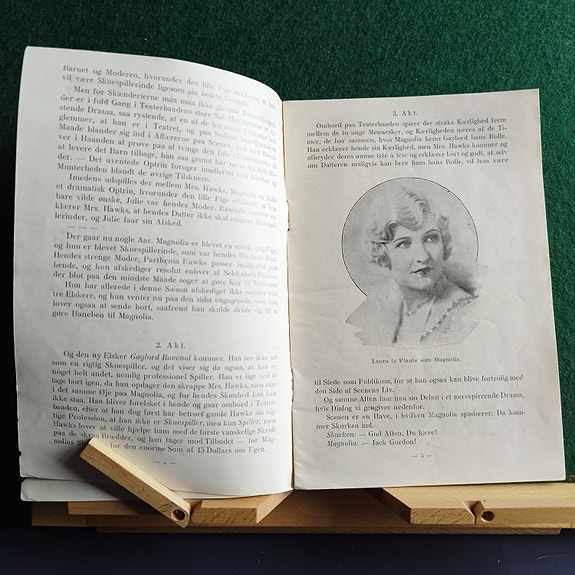 Barnet og Moderen, hvorunder den lille Pige erklærer, at hun
vil være Skuespillerinde ligesom sin bedste Veninde.
Men før Skænderierne man man ikke glemme
der er i fuld Gang i Teaterbaadens store Sal. Her
stende Drama, saa rystende, at en af de
glemmer, at han er i Teatret, og paa
Maade blander sig ind i Affærerne paa Scenen,
ver i Haanden at prøve paa at tvinge den
at levere det Barn tilbage, han saa grumt har
den. — Det uventede Optrin forager imidlertid kun
Munterheden blandt de øvrige Tilskuere.
Imedens udspilles der mellem Mrs. Hawks, Magnolia og Julie
et dramatisk Optrin, hvorunder den lille Pige erklærer, at hun
bare vilde ønske, Julie var hendes Moder. Rasende herover er-
klærer Mrs. Hawks, at hendes Datter ikke skal omgaas Skuespil-
lerinder, og Julie faar sin Afsked.
Der gaar nu nogle Aar. Magnolia er blevet en smuk, ung Pige,
og hun er blevet Skuespillerinde, som var hendes Maal.
Hendes strenge Moder, Parthenia Hawks passer imidlertid paa
hende, og hun afskediger resolut enhver af Selskabets
der blot paa den mindste Maade søger at gøre Kur til Datteren.
Hun har allerede i denne Sæson afskediget ikke mindre end
tre Elskere, og hun venter nu paa den sidst engagerede, som hun
lover ogsaa at sende bort, saafremt han skulde driste sig til at
gøre Haneben til Magnolia.
2. Akt.
Og den ny Elsker Gaylord Ravenal kommer. Han ser ikke ud
som en rigtig Skuespiller, og det viser sig da ogsaa, at han er
noget helt andet, nemlig professionel Spiller. Han er lige ved at
tage bort igen, da han opdager den skrappe Mrs. Hawks, men faar
i det samme Øje paa Magnolia, og for hendes Skønhed kan han
ikke staa. Han bliver forelsket i hende og gaar ombord i Teater-
baaden, efter at han dog først har betroet gamle Hawks sin rig-
tige Profession, at han ikke er Skuespiller, men kun Spiller, men
Hawks lover at ville hjælpe ham med de første vanskelige Skridt
paa de skraa Brædder, og han tager mod Tilbudet — for Mag-
nolias Skyld for den enorme Sum af 15 Dollars om Ugen.
3. Akt.
Ombord paa Teaterbaaden spirer der straks Kærlighed frem
mellem de to unge Mennesker, og Kærligheden næres af de Ti-
mer, de har sammen, hvor Magnolia lærer Gaylord hans Rolle.
Han erklærer hende sin Kærlighed, men Mrs. Hawks kommer og
afbryder deres ømme tête à tête og erklærer kort og godt, at selv
om Datteren muligvis kan lære ham hans Rolle, vil hun være
Laura la Plante som Magnolia.
til Stede som Publikum, for at han ogsaa kan blive fortrolig med
den Side af Scenens Liv.
Og samme Aften faar hun sin Debut i et nervepirrende Drama,
hvis Dialog vi gengiver nedenfor.
Scenen er en Have, i hvilken Magnolia spadserer. Da kom-
mer Skurken ind.
Skurken: — God Aften, Du kære!
Magnolia: — Jack Gordon!
— 5 —